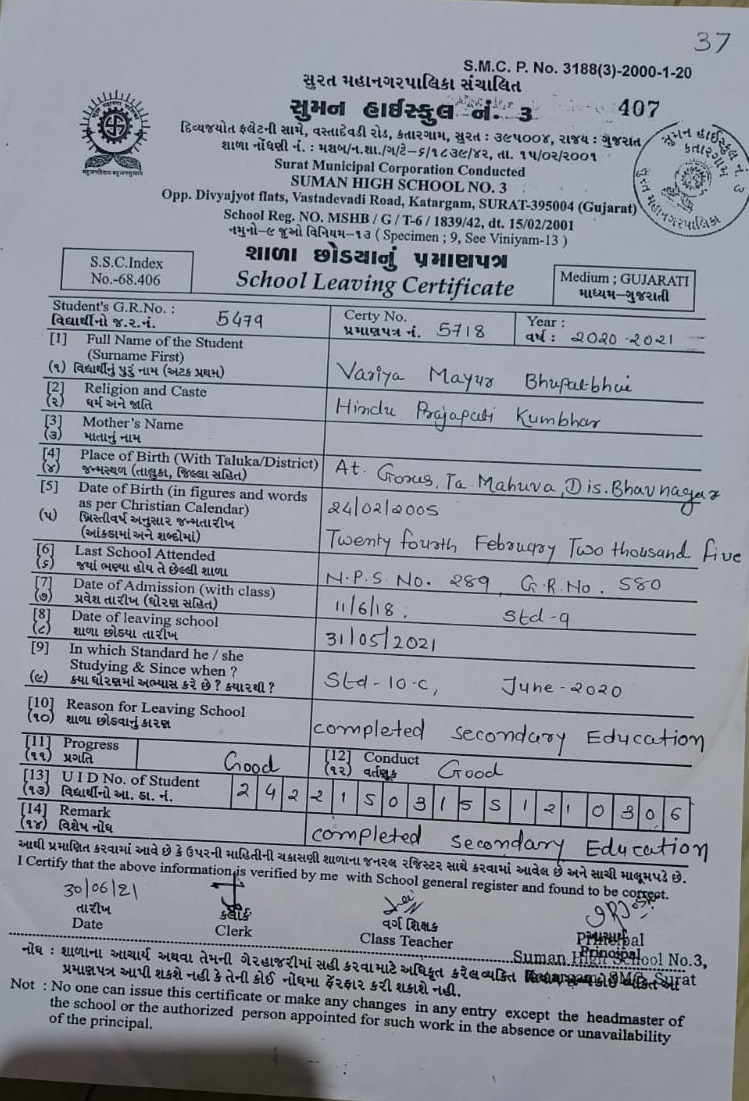 37
S.M.C. P. No. 3188(3)-2000-1-20
સુરત મહાનગરપાલિકા સંચાલિત
સુમન હાઈસ્કુલ નં. ૩
407
દિવ્યજયોત ફ્લેટની સામે, વસ્તાદેવડી રોડ, કતારગામ, સુરત : ૩૯૫૦૦૪, રાજય : ગુજરાત
શાળા નોંધણી નં. : મશબ/ન.શા./ગ/ટે-૬/૧૮૩૯/૪૨, તા. ૧૫/૦૨/૨૦૦૧
Surat Municipal Corporation Conducted
SUMAN HIGH SCHOOL NO. 3
Opp. Divyajyot flats, Vastadevadi Road, Katargam, SURAT-395004 (Gujarat)
School Reg. NO. MSHB / G / T-6 / 1839/42, dt. 15/02/2001
નમુનો-૯ જૂઓ વિનિયમ-૧૩ ( Specimen ; 9, See Viniyam-13 )
સુમન હાઈસ્કુલ નં. ૩
કતારગામ
સુરત મહાનગરપાલિકા
શાળા છોડયાનું પ્રમાણપત્ર
S.S.C.Index
No.-68.406
School Leaving Certificate
Medium ; GUJARATI
માધ્યમ-ગુજરાતી
Student's G.R.No. :
વિદ્યાર્થીનો જ.ર.નં.
5479
Certy No.
પ્રમાણપત્ર નં. 5718
Year :
વર્ષ : 2020-2021
[1] Full Name of the Student
(Surname First)
(૧) વિદ્યાર્થીનું પુરૂં નામ (અટક પ્રથમ)
Variya Mayur Bhupatbhai
[2] Religion and Caste
(૨) ધર્મ અને જાતિ
Hindu Prajapati Kumbhar
[3] Mother's Name
(૩) માતાનું નામ
[4] Place of Birth (With Taluka/District)
(૪) જન્મસ્થળ (તાલુકા, જિલ્લા સહિત)
At. Goras, Ta. Mahuva, Dis. Bhavnagar
[5] Date of Birth (in figures and words
as per Christian Calendar)
(૫) ખ્રિસ્તીવર્ષ અનુસાર જન્મતારીખ
(આંકડામાં અને શબ્દોમાં)
24/02/2005
Twenty fourth February Two thousand five
[6] Last School Attended
(૬) જયાં ભણ્યા હોય તે છેલ્લી શાળા
N.P.S. No. 289, G.R.No. 580
[7] Date of Admission (with class)
(૭) પ્રવેશ તારીખ (ધોરણ સહિત)
11/6/18. Std-9
[8] Date of leaving school
(૮) શાળા છોડયા તારીખ
31/05/2021
[9] In which Standard he / she
Studying & Since when ?
(૯) કયા ધોરણમાં અભ્યાસ કરે છે ? કયારથી ?
Std-10-C, June-2020
[10] Reason for Leaving School
(૧૦) શાળા છોડવાનું કારણ
completed secondary Education
[11] Progress
(૧૧) પ્રગતિ
Good
[12] Conduct
(૧૨) વર્તણૂક
Good
[13] U I D No. of Student
(૧૩) વિદ્યાર્થીનો આ. ડા. નં.
2 4 2 2 1 5 0 3 1 5 5 1 2 1 0 3 0 6
[14] Remark
(૧૪) વિશેષ નોંધ
completed secondary Education
આથી પ્રમાણિત કરવામાં આવે છે કે ઉપરની માહિતીની ચકાસણી શાળાના જનરલ રજિસ્ટર સાથે કરવામાં આવેલ છે અને સાચી માલૂમ પડે છે.
I Certify that the above information is verified by me with School general register and found to be correct.
30/06/21
તારીખ
Date
કલાર્ક
Clerk
વર્ગ શિક્ષક
Class Teacher
આચાર્ય
Principal
Principal
Suman High School No.3,
SMC, Surat
નોંધ : શાળાના આચાર્ય અથવા તેમની ગેરહાજરીમાં સહી કરવા માટે અધિકૃત કરેલ વ્યક્તિ
પ્રમાણપત્ર આપી શકશે નહી કે તેની કોઈ નોંધમા ફેરફાર કરી શકાશે નહી.
Not : No one can issue this certificate or make any changes in any entry except the headmaster of
the school or the authorized person appointed for such work in the absence or unavailability
of the principal.